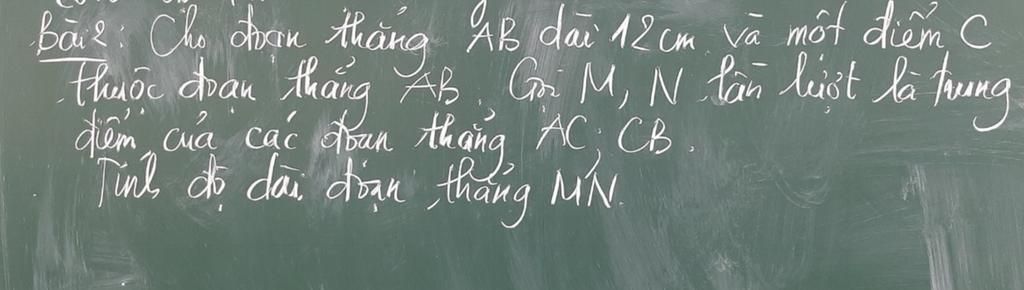 bài 2: Cho đoạn thẳng AB dài 12 cm và một điểm C
thuộc đoạn thẳng AB. Gọi M, N lần lượt là trung
điểm của các đoạn thẳng AC, CB.
Tính độ dài đoạn thẳng MN.